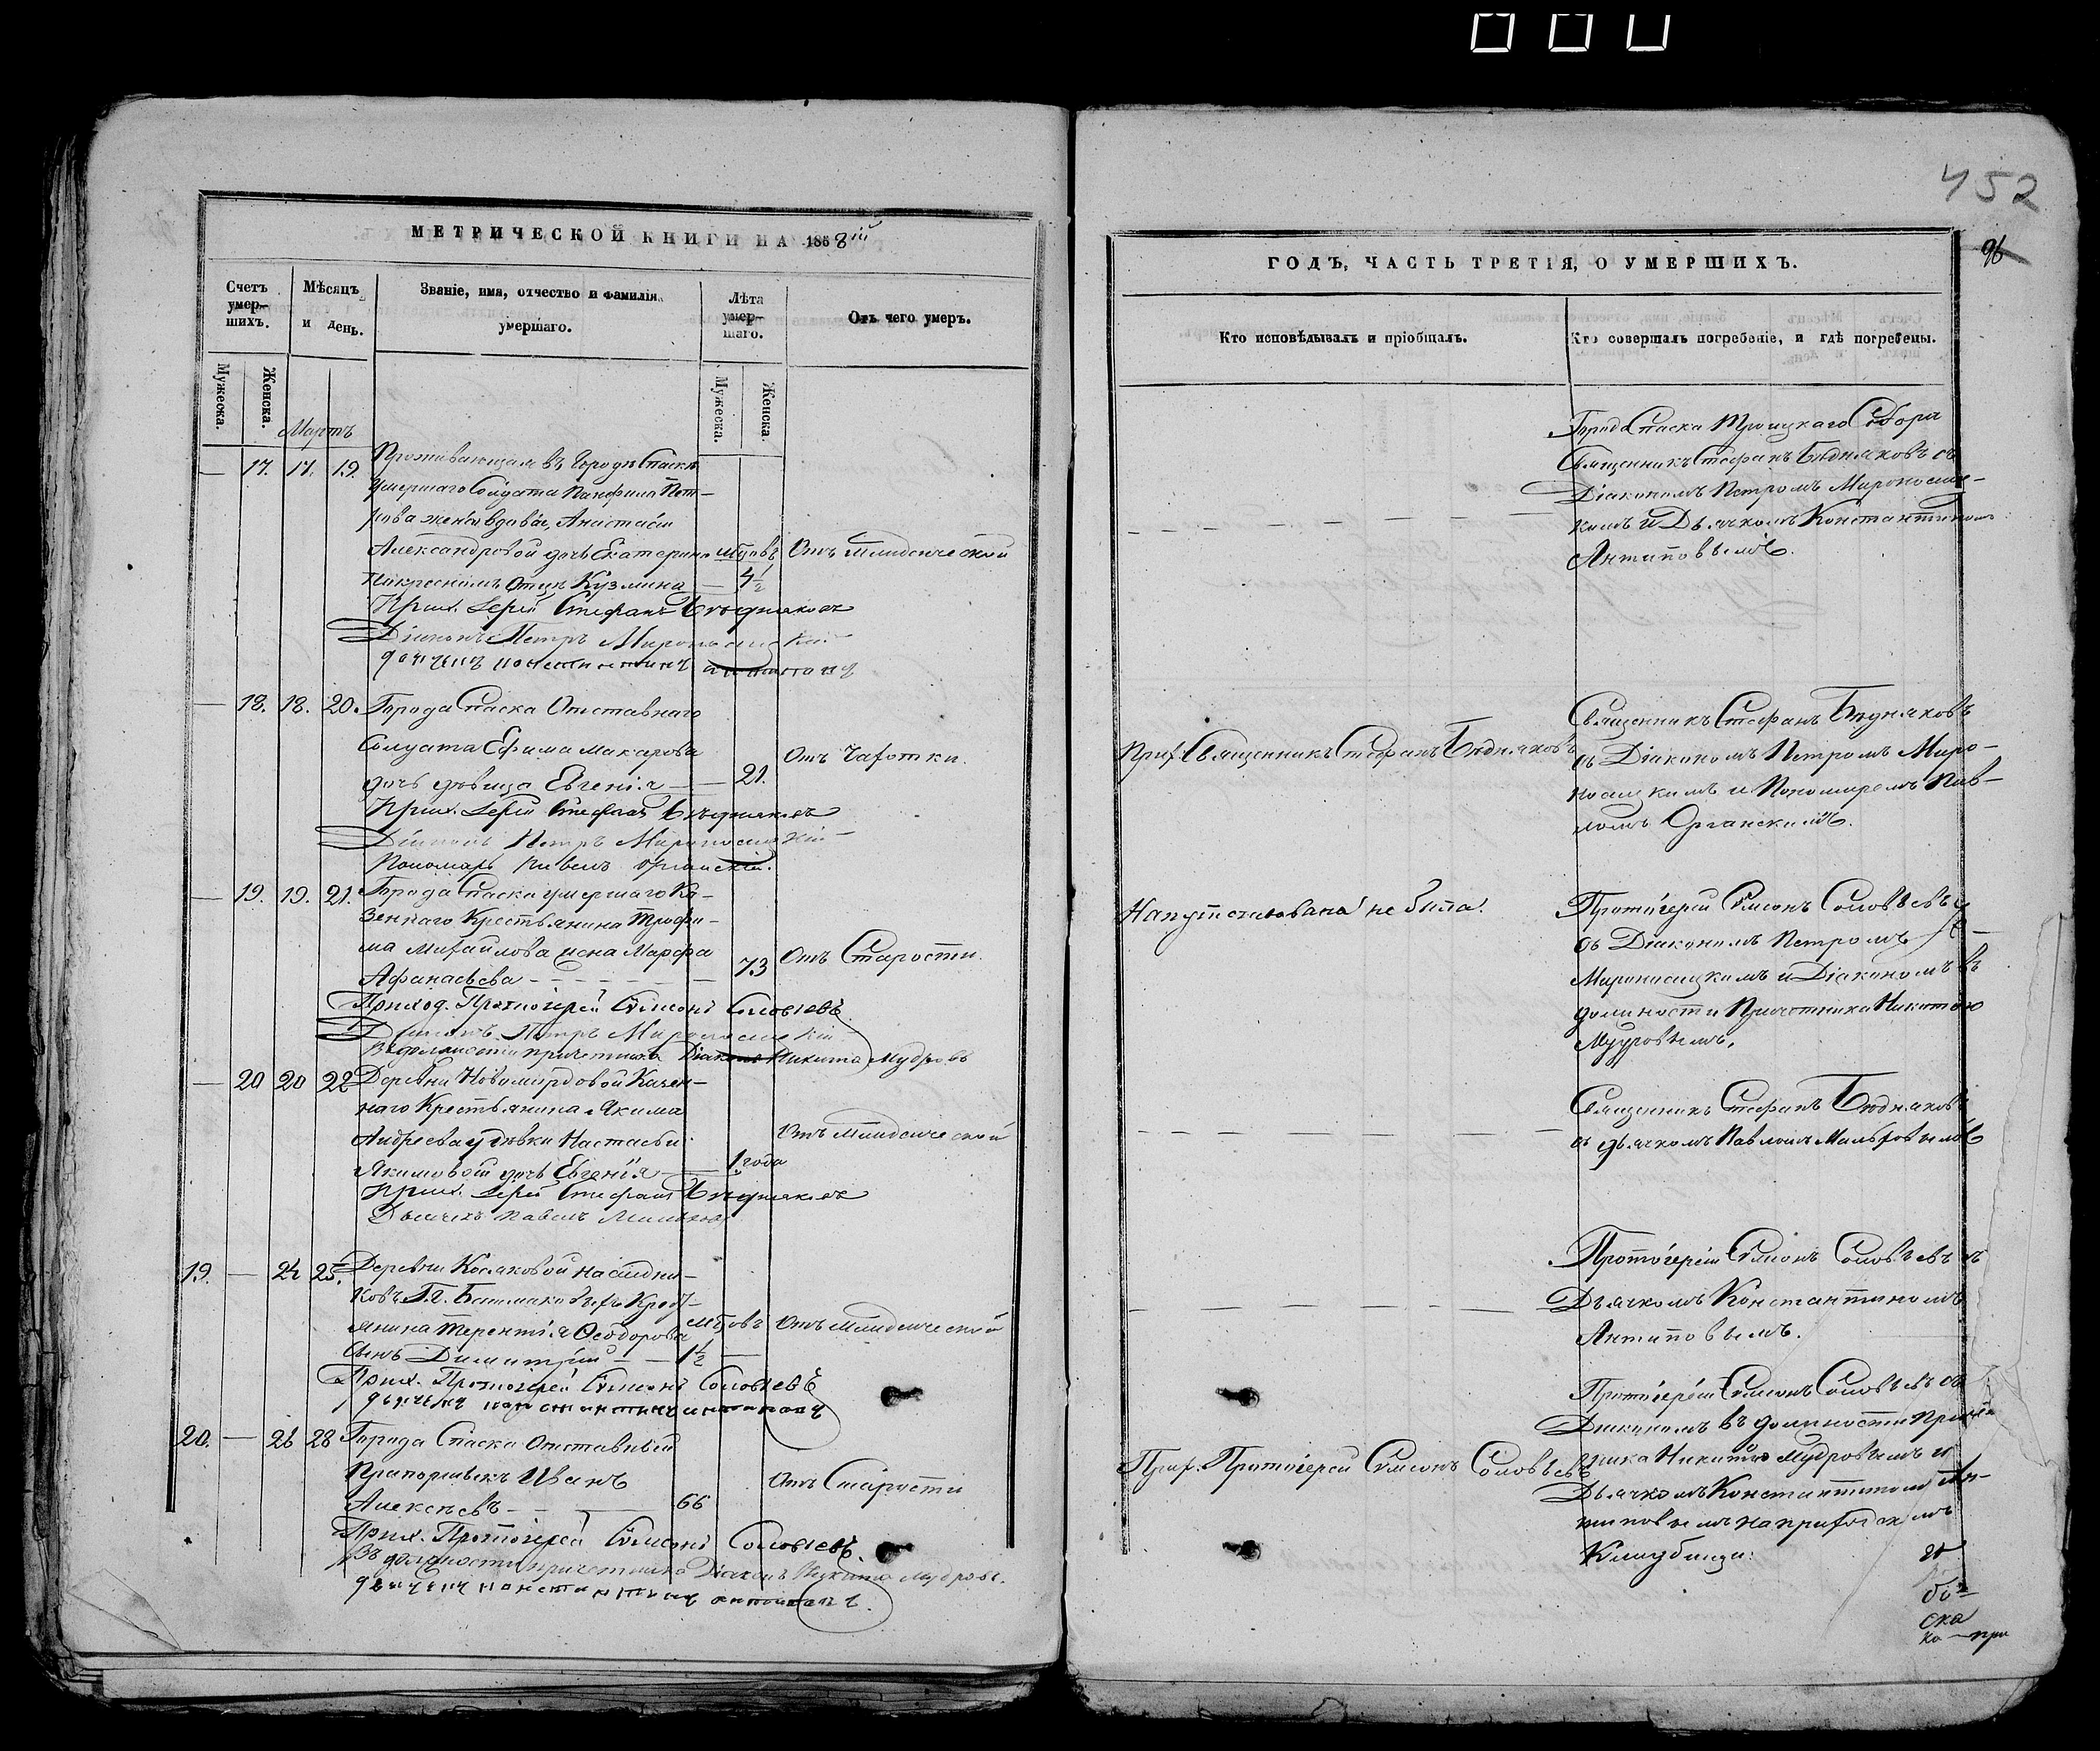 МЕТРИЧЕСКОЙ КНИГИ НА 1858й
Счетъ умер- шихъ.
Мѣсяцъ и день.
Званіе, имя, отчество и фамилія умершаго.
Лѣта умер- шаго.
Отъ чего умеръ.
Мужеска.
Женска.
Мужеска.
Женска.
Мартъ
— 17. 17. 19. Проживающая въ Городѣ Спаскѣ
умершаго Солдата Панфила Пет-
рова жены вдовы Анастасіи
Александровой дочь Екатерина мцовъ Отъ Младенческой
По крестномъ Отцѣ Кузмина — 4½
Прих. Іерей Стефанъ Бѣдняковъ
Діаконъ Петръ Мироносицкій
дьячекъ константинъ антиповъ
— 18. 18. 20. Города Спаска Отставнаго
Солдата Ефима Макарова
Отъ Чахотки.
дочь дѣвица Евгенія — 21.
Прих. Іерей Стефанъ Бѣдняковъ
Діаконъ Петръ Мироносицкій
Пономарь Павелъ Органскій.
— 19. 19. 21. Города Спаска умершаго Ка-
зеннаго Крестьянина Трофи-
ма Михайлова жена Марфа
Отъ Старости.
Афанасьева — 73
Приход. Протоіерей Сѵмеонъ Соловьевъ
Діаконъ Петръ Мироносицкій
Въ должности причетника Діаконъ Никита Мудровъ
— 20 20 22 Деревни Новомордовой Казен-
наго Крестьянина Якима
Андреева у дѣвки Настасьи
Отъ Младенческой
Якимовой дочь Евгенія — 1. года
Прих. Іерей Стефанъ Бѣдняковъ
Дьячекъ Павелъ
19. — 24 25. Деревни Кожаковой наслѣдни-
ковъ Г.г. Крест-
янина Терентія Ѳеодорова мцовъ Отъ Младенческой
сынъ Димитрій — 1½ —
Прих. Протоіерей Сѵмеонъ Соловьевъ
дьячекъ константинъ антиповъ
20. — 26 28 Города Спаска Отставный
Прапорщикъ Иванъ
Отъ Старости
Алексѣевъ — 66
Прих. Протоіерей Сѵмеонъ Соловьевъ.
Въ должности причетника Діаконъ Никита Мудровъ.
дьячекъ константинъ антиповъ.
452
96
ГОДЪ, ЧАСТЬ ТРЕТІЯ, О УМЕРШИХЪ.
Кто исповѣдывалъ и пріобщалъ.
Кто совершалъ погребеніе, и гдѣ погребены.
Города Спаска Троицкаго Собора
Священникъ Стефанъ Бѣдняковъ съ
Діакономъ Петромъ Мироносиц-
кимъ и Дьячкомъ Константиномъ
Антиповымъ.
Священникъ Стефанъ Бѣдняковъ
Прих. Священникъ Стефанъ Бѣдняковъ
съ Діакономъ Петромъ Миро-
носицкимъ и Пономаремъ Пав-
ломъ Органскимъ.
Напутствована не была.
Протоіерей Сѵмеонъ Соловьевъ
съ Діакономъ Петромъ
Мироносицкимъ и Діакономъ въ
должности Причетника Никитою
Мудровымъ.
Священникъ Стефанъ Бѣдняковъ
съ дьячкомъ Павломъ
Протоіерей Сѵмеонъ Соловьевъ съ
Дьячкомъ Константиномъ
Антиповымъ.
Протоіерей Сѵмеонъ Соловьевъ съ
Діакономъ въ должности Причет-
Прих. Протоіерей Сѵмеонъ Соловьевъ
ника Никитою Мудровымъ и
Дьячкомъ Константиномъ Ан-
типовымъ на приходскомъ
Кладбищѣ.
ска